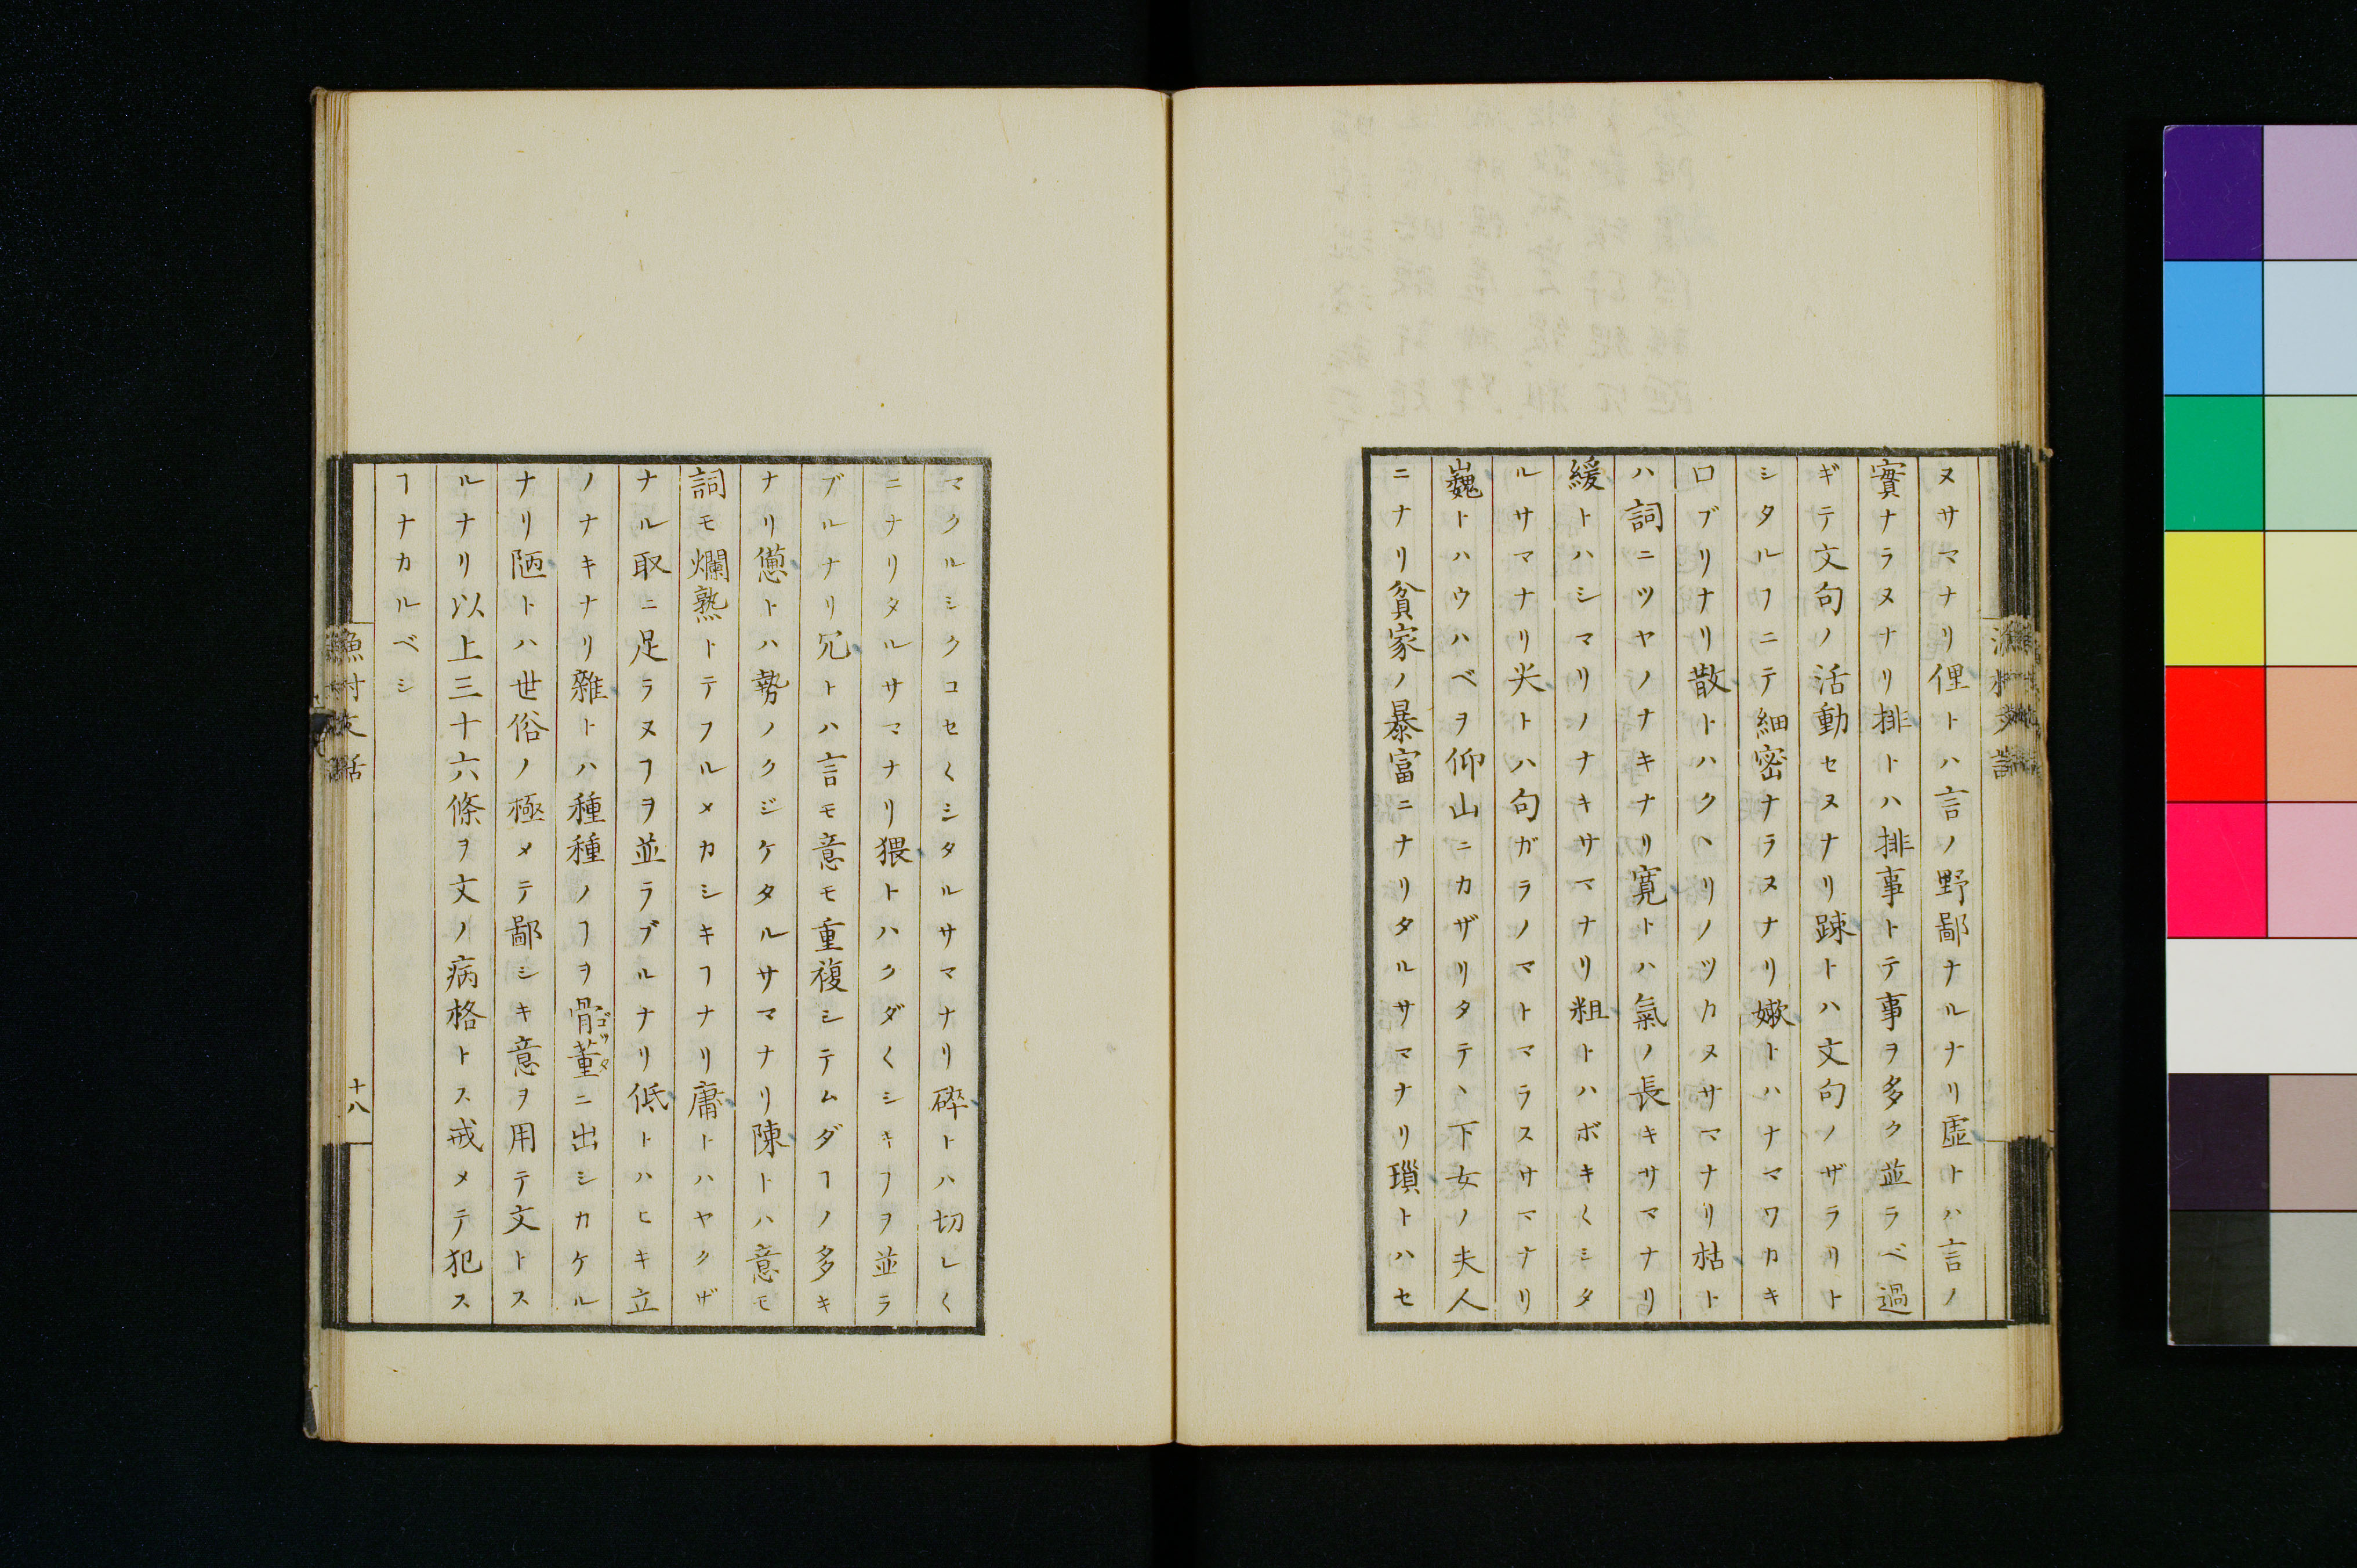 ヌサマナリ俚トハ言ノ野鄙ナルナリ虛トハ言ノ
實ナラヌナリ排トハ排事トテ事ヲ多ク並ラベ過
ギテ文句ノ活動セヌナリ踈トハ文句ノザラリト
シタルヿニテ細密ナラヌナリ嫰トハナマワカキ
口ブリナリ散トハクヽリノツカヌサマナリ枯ト
ハ詞ニツヤノナキナリ寛トハ氣ノ長キサマナリ
緩トハシマリノナキサマナリ粗トハボキ〱ミタ
ルサマナリ尖トハ句ガラノマトマラスサマナリ
巍トハウハベヲ仰山ニカザリタテヽ下女ノ夫人
ニナリ貧家ノ暴富ニナリタルサマナリ瑣トハセ
マクルシクコセ〱シタルサマナリ碎トハ切レ〱
ニナリタルサマナリ猥トハクダ〱シキヿヲ並ラ
ブルナリ冗トハ言モ意モ重複シテムダヿノ多キ
ナリ憊トハ勢ノクジケタルサマナリ陳トハ意モ
詞モ爛熟トテフルメカシキヿナリ庸トハヤクザ
ナル取ニ足ラヌヿヲ並ラブルナリ低トハヒキ立
ノナキナリ雜トハ種種ノヿヲ骨董ニ出シカケル
ゴツタ
ナリ陋トハ世俗ノ極メテ鄙シキ意ヲ用テ文トス
ルナリ以上三十六條ヲ文ノ病格トス戒メテ犯ス
ヿナカルベシ
漁村文話
十八